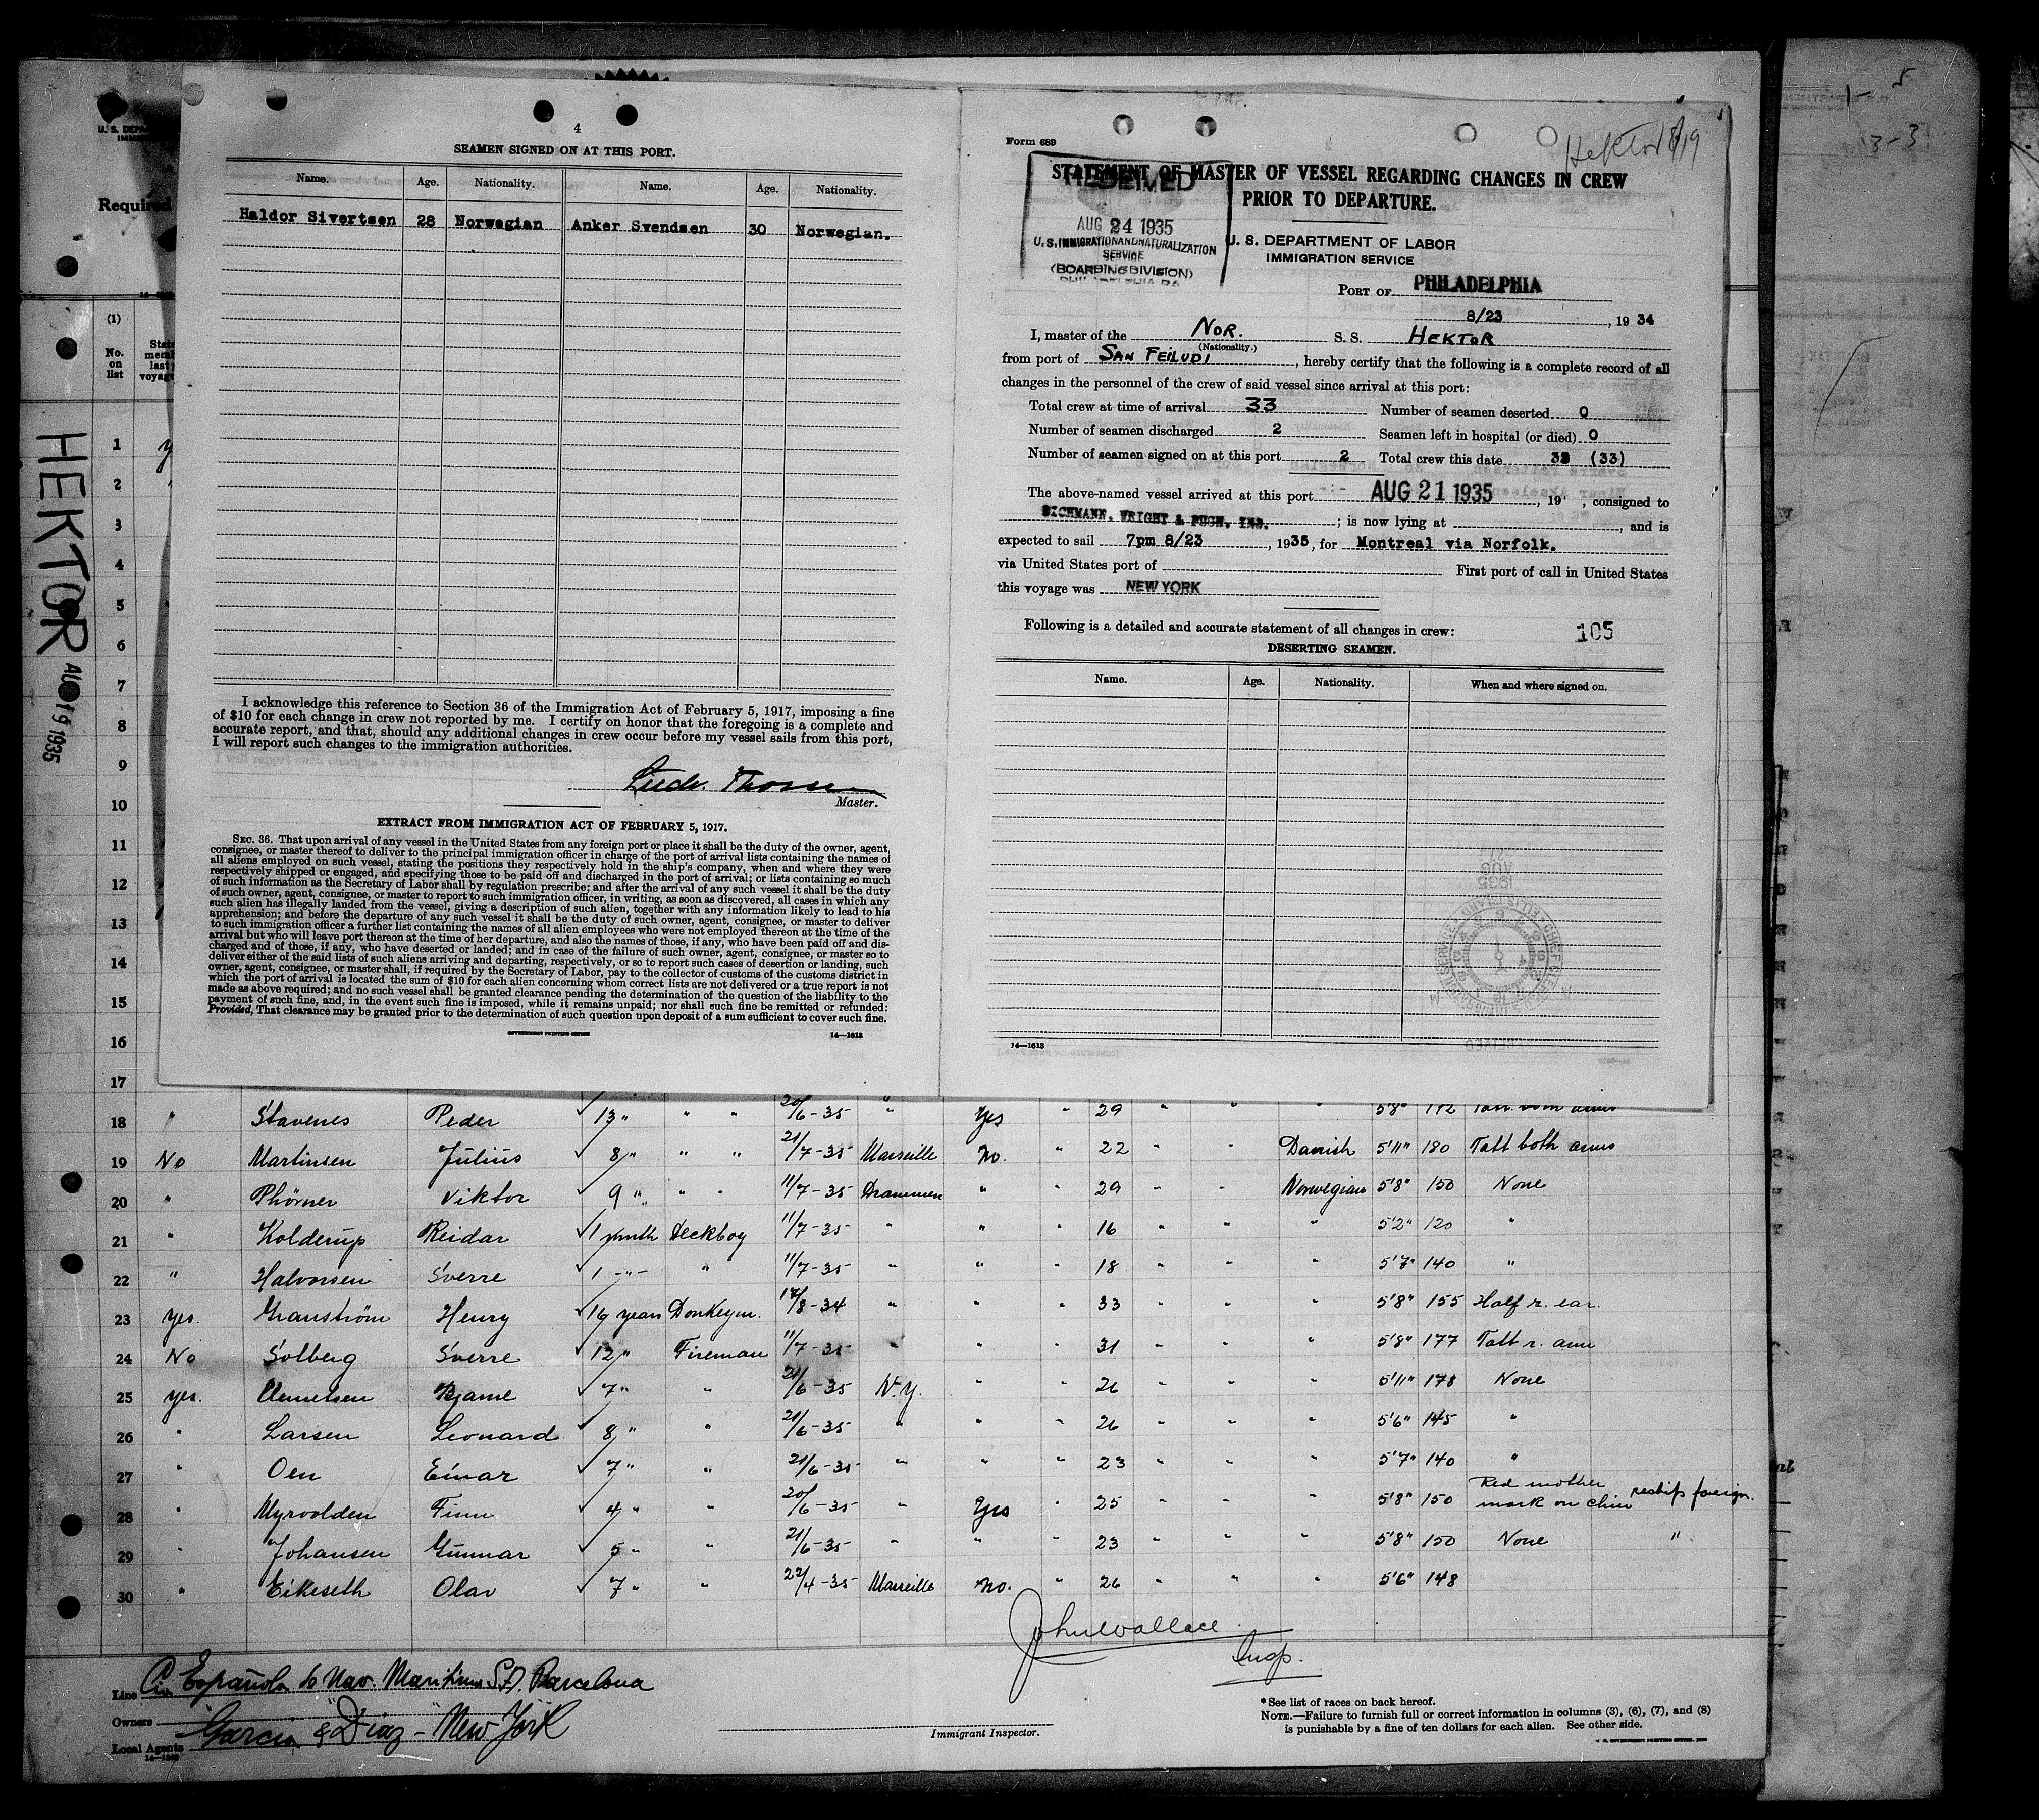 4
SEAMEN SIGNED ON AT THIS PORT.
Name. Age. Nationality. Name. Age. Nationality.
Haldor Sivertsen 28 Norwegian Anker Svendsen 30 Norwegian.
I acknowledge this reference to Section 36 of the Immigration Act of February 5, 1917, imposing a fine
of $10 for each change in crew not reported by me. I certify on honor that the foregoing is a complete and
accurate report, and that, should any additional changes in crew occur before my vessel sails from this port,
I will report such changes to the immigration authorities.
Master.
EXTRACT FROM IMMIGRATION ACT OF FEBRUARY 5, 1917.
SEC. 36. That upon arrival of any vessel in the United States from any foreign port or place it shall be the duty of the owner, agent,
consignee, or master thereof to deliver to the principal immigration officer in charge of the port of arrival lists containing the names of
all aliens employed on such vessel, stating the positions they respectively hold in the ship's company, when and where they were
respectively shipped or engaged, and specifying those to be paid off and discharged in the port of arrival; or lists containing so much
of such information as the Secretary of Labor shall by regulation prescribe; and after the arrival of any such vessel it shall be the duty
of such owner, agent, consignee, or master to report to such immigration officer, in writing, as soon as discovered, all cases in which any
such alien has illegally landed from the vessel, giving a description of such alien, together with any information likely to lead to his
apprehension; and before the departure of any such vessel it shall be the duty of such owner, agent, consignee, or master to deliver
to such immigration officer a further list containing the names of all alien employees who were not employed thereon at the time of the
arrival but who will leave port thereon at the time of her departure, and also the names of those, if any, who have been paid off and dis-
charged and of those, if any, who have deserted or landed; and in case of the failure of such owner, agent, consignee, or master so to
deliver either of the said lists of such aliens arriving and departing, respectively, or so to report such cases of desertion or landing, such
owner, agent, consignee, or master shall, if required by the Secretary of Labor, pay to the collector of customs of the customs district in
which the port of arrival is located the sum of $10 for each alien concerning whom correct lists are not delivered or a true report is not
made as above required; and no such vessel shall be granted clearance pending the determination of the question of the liability to the
payment of such fine, and, in the event such fine is imposed, while it remains unpaid; nor shall such fine be remitted or refunded:
Provided, That clearance may be granted prior to the determination of such question upon deposit of a sum sufficient to cover such fine.
GOVERNMENT PRINTING OFFICE 14—1613
Form 689
Hektor 8/19
STATEMENT OF MASTER OF VESSEL REGARDING CHANGES IN CREW
PRIOR TO DEPARTURE.
RECEIVED
AUG 24 1935
U.S. IMMIGRATION AND NATURALIZATION
SERVICE
(BOARDING DIVISION)
PHILADELPHIA PA
U. S. DEPARTMENT OF LABOR
IMMIGRATION SERVICE
PORT OF PHILADELPHIA
8/23, 1934
I, master of the NOR. S. S. HEKTOR
(Nationality.)
from port of SAN FEILUDI, hereby certify that the following is a complete record of all
changes in the personnel of the crew of said vessel since arrival at this port:
Total crew at time of arrival 33 Number of seamen deserted 0
Number of seamen discharged 2 Seamen left in hospital (or died) 0
Number of seamen signed on at this port 2 Total crew this date 33 (33)
The above-named vessel arrived at this port AUG 21 1935, 19 , consigned to
WRIGHT & PUGH, INC. ; is now lying at , and is
expected to sail 7pm 8/23, 1935, for Montreal via Norfolk.
via United States port of First port of call in United States
this voyage was NEW YORK
Following is a detailed and accurate statement of all changes in crew: 105
DESERTING SEAMEN.
Name. Age. Nationality. When and where signed on.
14—1613
Required
(1)
No. on list
HEKTOR
AUG 19 1935
1
2
3
4
5
6
7
8
9
10
11
12
13
14
15
16
17
18 " Stavenes Peder 13 " " " 20/6-35 " Yes " 29 " " " 5'8" 172
19 No Martinsen Julius 8 " " " 21/7-35 Marseille No. " 22 " " Danish 5'11" 180 Tatt both arms
20 " Phörner Viktor 9 " " " 11/7-35 Drammen " 29 " " Norwegian 5'8" 150 None
21 " Kolderup Reidar 1 month Deckboy 11/7-35 " " 16 " " " 5'2" 120 "
22 " Halvorsen Sverre 1 -"- " 11/7-35 " " " 18 " " " 5'7" 140 "
23 yes. Granström Henry 16 years Donkeym. 17/8-34 " " " 33 " " " 5'8" 155 Half r. ear.
24 No Solberg Sverre 12 " Fireman 11/7-35 " " " 31 " " " 5'8" 177 Tatt r. arm
25 yes. Clemetsen Bjarne 7 " " 21/6-35 N.Y. " " 26 " " " 5'11" 178 None
26 " Larsen Leonard 8 " " 21/6-35 " " " 26 " " " 5'6" 145 "
27 " Oen Einar 7 " " 21/6-35 " " " 23 " " " 5'7" 140 "
28 " Myrvolden Finn 4 " " 20/6-35 " Yes " 25 " " " 5'8" 150 Red mother mark on chin reship foreign.
29 " Johansen Gunnar 5 " " 21/6-35 " " " 23 " " " 5'8" 150 None "
30 " Eikeseth Olav 7 " " 22/4-35 Marseille No. " 26 " " " 5'6" 148
John Wallace
Insp.
Line Cia Española de Nav. Maritima S.A. Barcelona
Owners
Local Agents Garcia & Diaz - New York
14—1240
Immigrant Inspector.
*See list of races on back hereof.
NOTE.—Failure to furnish full or correct information in columns (3), (6), (7), and (8)
is punishable by a fine of ten dollars for each alien. See other side.
1- 5
3-3